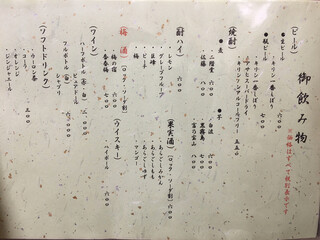 御飲み物
※価格はすべて税別表示です
(ビール)
●生ビール
キリン一番しぼり 六〇〇
●瓶ビール
キリン一番しぼり 七〇〇
アサヒスーパードライ 七〇〇
キリンノンアルコールフリー 五五〇
(焼酎)
●麦
二階堂 六〇〇
佐藤 七〇〇
●芋
白波 六〇〇
黒霧島 七〇〇
富乃宝山 八〇〇
(酎ハイ) 六〇〇
・プレーン
・グレープフルーツ
・巨峰
・レモン
(果実酒) (ロック・ソーダ割)
・あらごしみかん
・あらごしもも
・あらごしゆず
・マンゴー
梅酒 (ロック・ソーダ割)
・梅の宿 六〇〇
・杏香梅 七〇〇
(ウイスキー)
ハイボール 六〇〇
(ワイン)
ハーフボトル(白)
フルボトル(白)
シャブリ
(ソフトドリンク)
・ウーロン茶
・コーラ 三〇〇
・オレンジ
・ジンジャエール